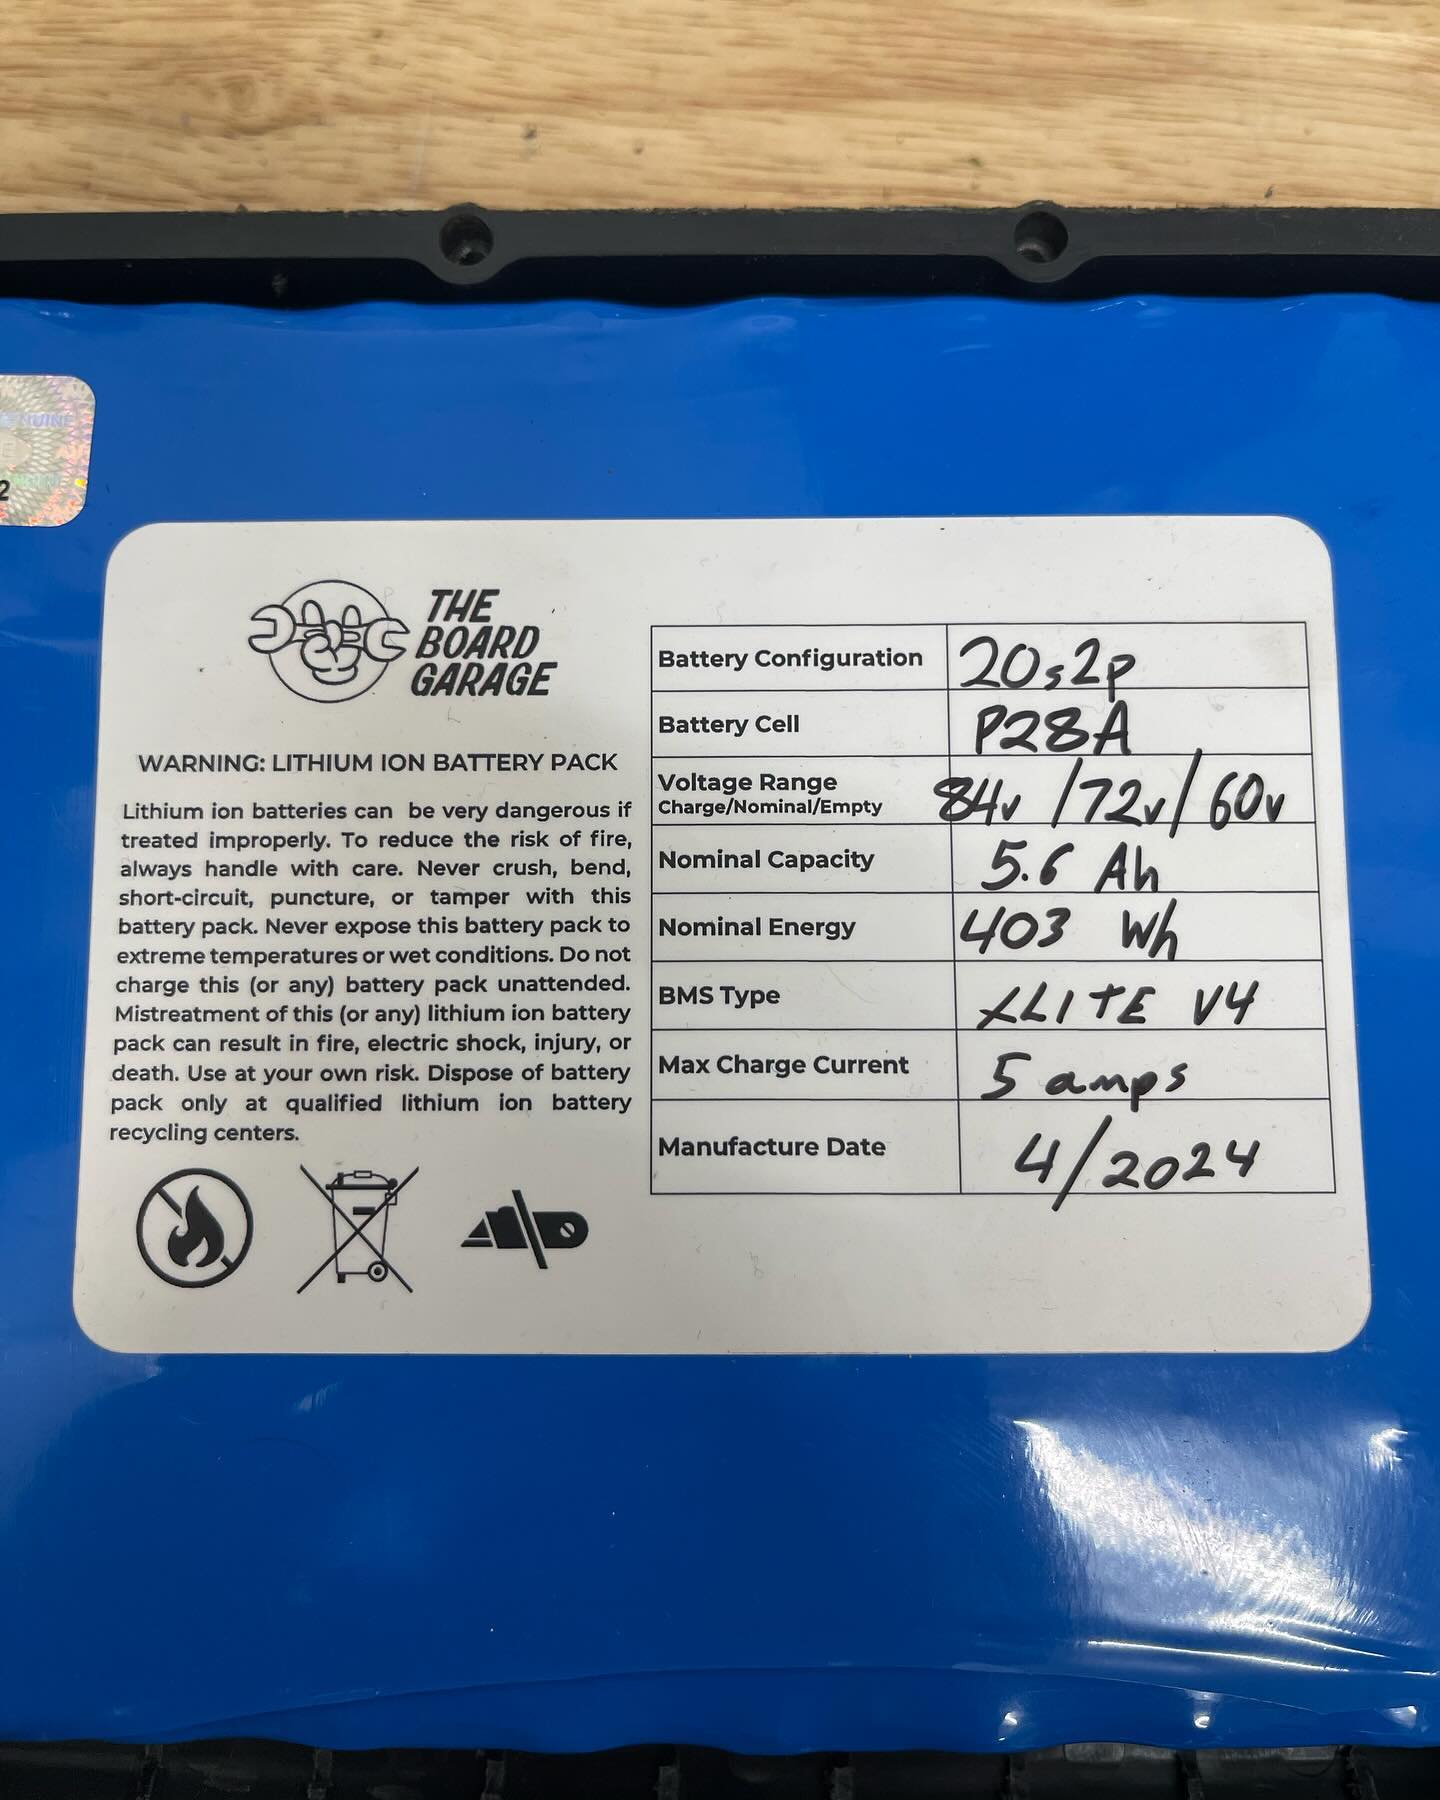 2
THE
BOARD
GARAGE
WARNING: LITHIUM ION BATTERY PACK
Lithium ion batteries can be very dangerous if
treated improperly. To reduce the risk of fire,
always handle with care. Never crush, bend,
short-circuit, puncture, or tamper with this
battery pack. Never expose this battery pack to
extreme temperatures or wet conditions. Do not
charge this (or any) battery pack unattended.
Mistreatment of this (or any) lithium ion battery
pack can result in fire, electric shock, injury, or
death. Use at your own risk. Dispose of battery
pack only at qualified lithium ion battery
recycling centers.
Battery Configuration 20s2p
Battery Cell P28A
Voltage Range 84v /72v/ 60v
Charge/Nominal/Empty
Nominal Capacity 5.6 Ah
Nominal Energy 403 Wh
BMS Type XLITE V4
Max Charge Current 5 amps
Manufacture Date 4/2024